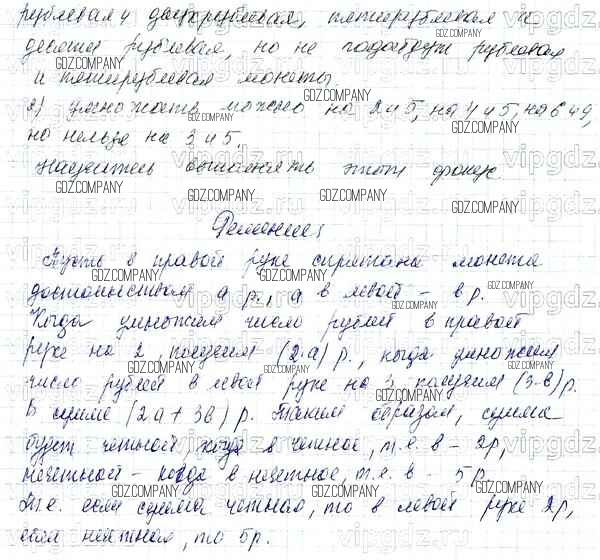 рублевая и двухрублевая, пятирублевая и
десяти рублевая, но не подойдут рублевая
и пятирублевая монеты.
2) умножать можно на 2 и 5, на 4 и 5, на 6 и 9,
но нельзя на 3 и 5.
Научитесь выполнять этот фокус
Решение:
Пусть в правой руке спрятана монета
достоинством а р., а в левой - в р.
Когда умножим число рублей в правой
руке на 2, получим (2·а) р., когда умножим
число рублей в левой руке на 3, получим (3·в) р.
В сумме (2а + 3в) р. Таким образом, сумма
будет четной, когда в четное, т.е. в - 2р,
нечетной - когда в нечетное, т.е. в - 5р.
Т.е. если сумма четная, то в левой руке 2р,
если нечётная, то 5р.
GDZ.COMPANY
vipgdz.ru